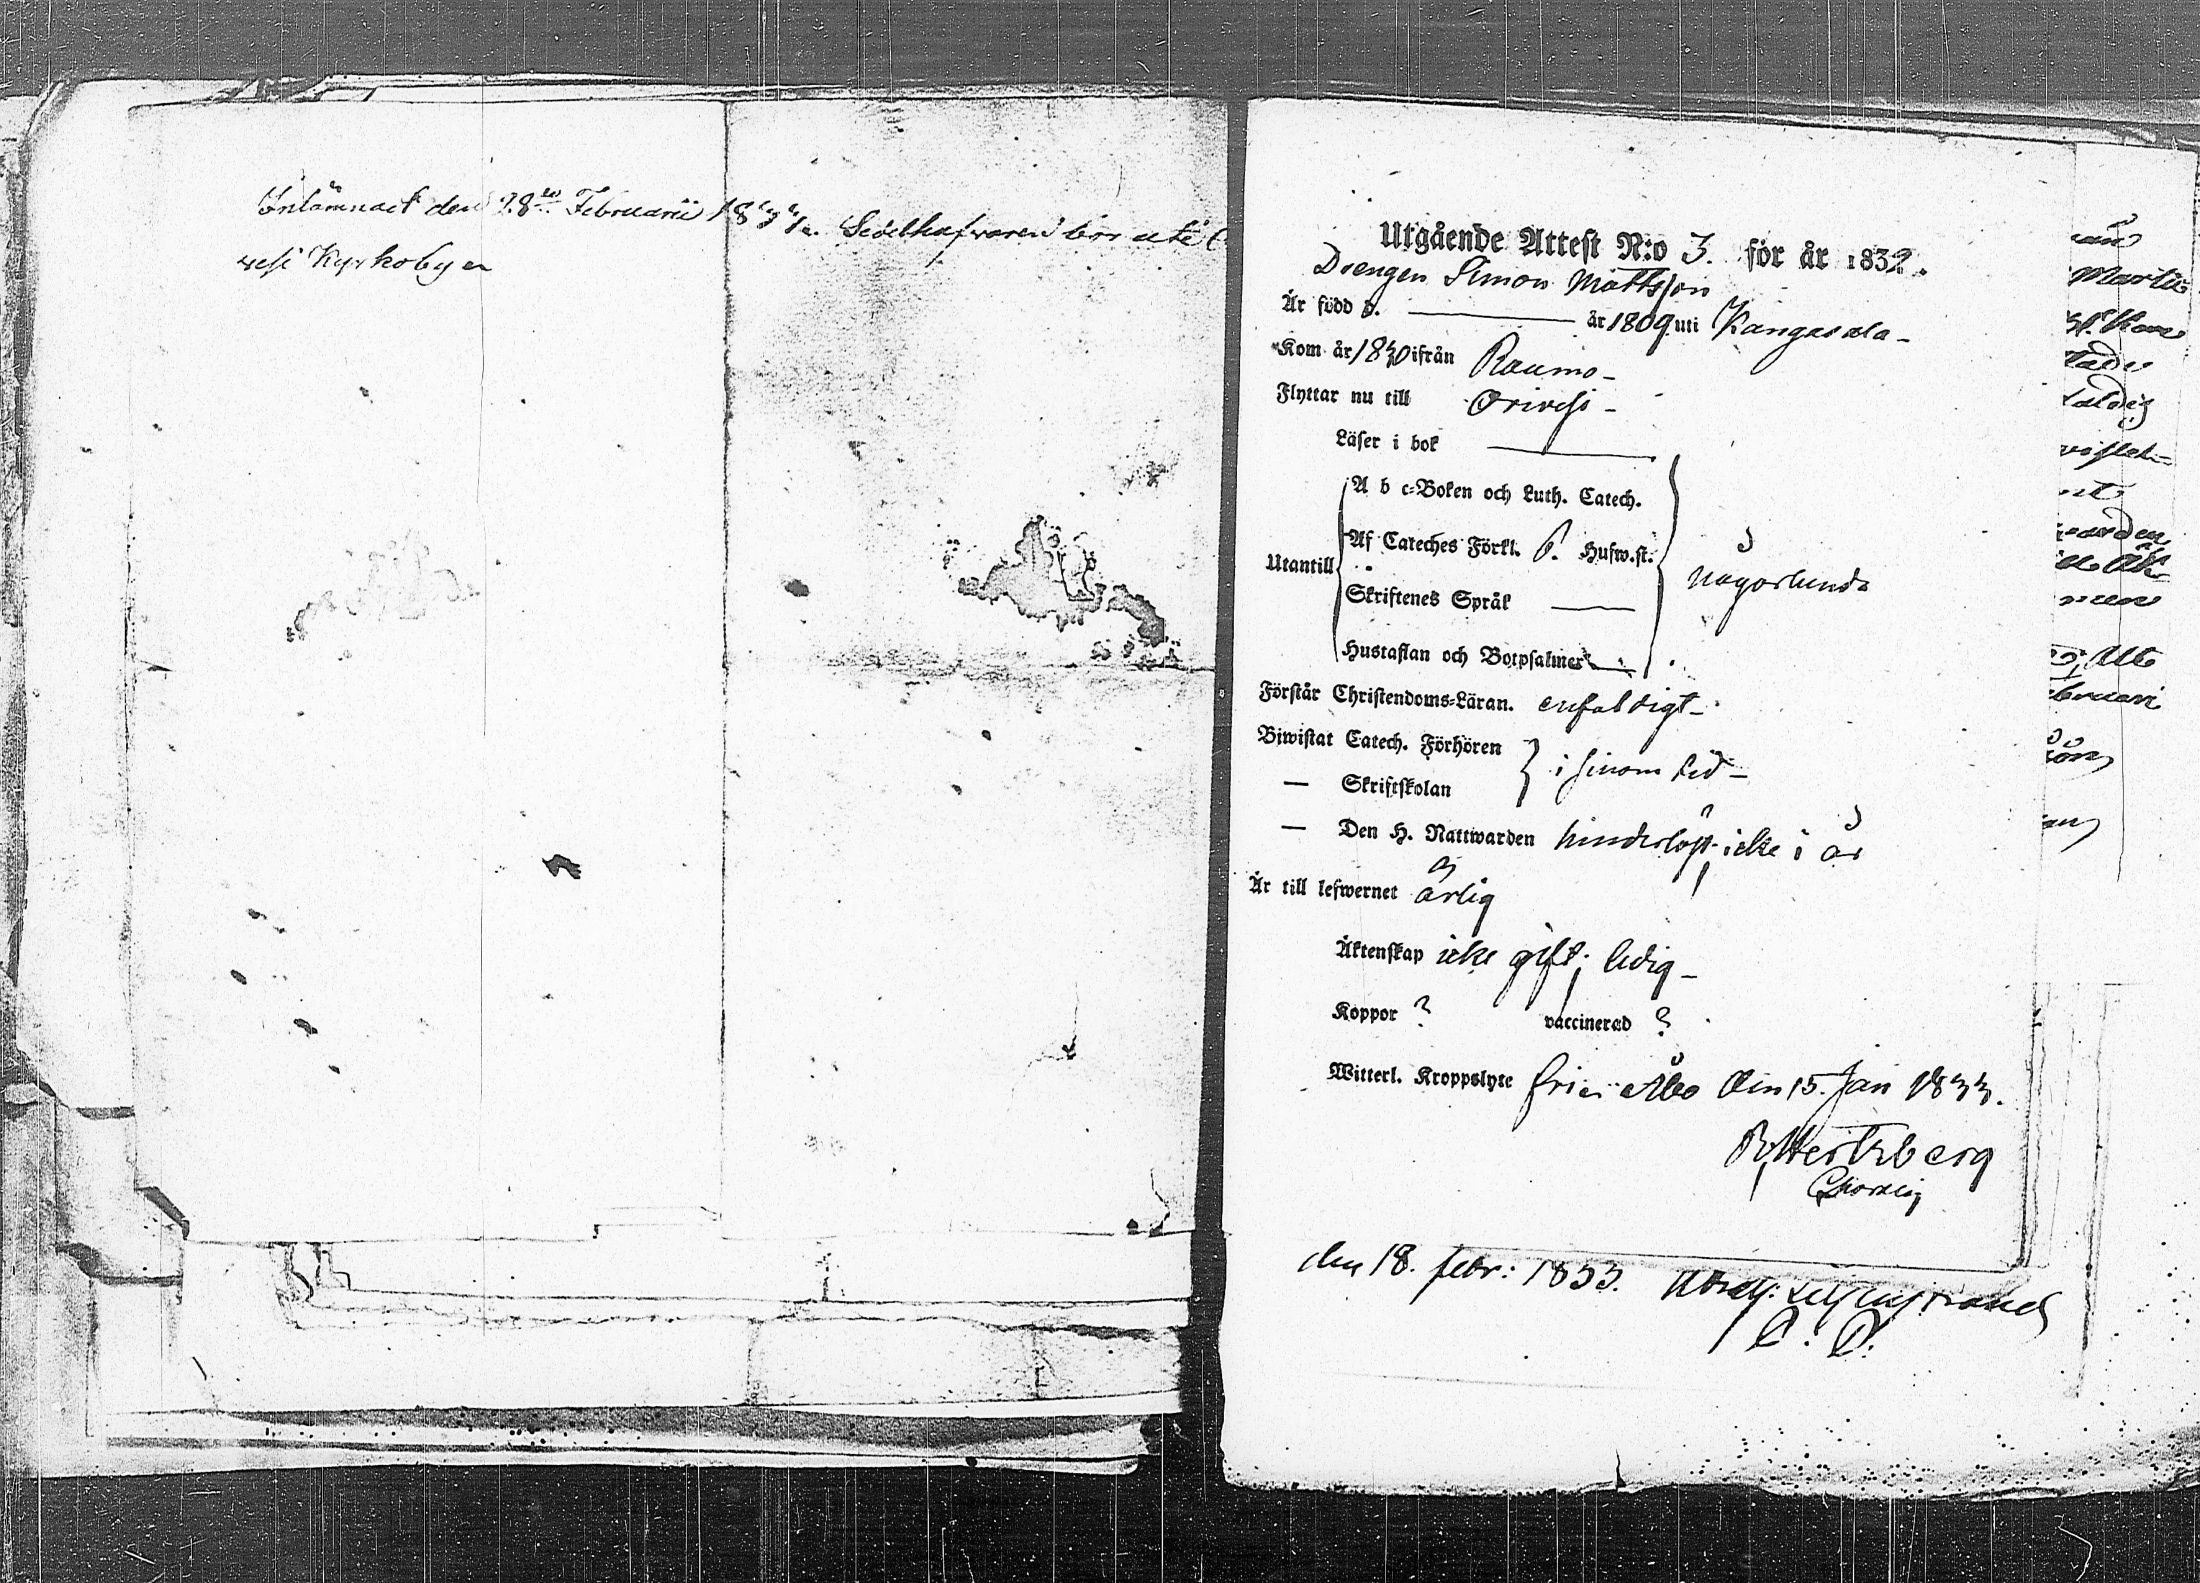 Inlämnadt den 28de Februarii 1833. Sedelhafvaren bör uti
vesi Kyrkobyen
Utgående Attest N:o 3. för år 1832.
Drengen Simon Mattsson
Är född d. ——— år 1809 uti Kangasala -
Kom år 1830 ifrån Raumo -
Flyttar nu till Orivesi -
Läser i bok ———
A b c-Boken och Luth. Catech.
Af Cateches Förkl. S. Husw.st.
Utantill
någorlunda
Skriftenes Språk ——
Hustaflan och Botpsalmer —
Förstår Christendoms-Läran. enfaldigt -
Biwistat Catech. Förhören
i sinom tid -
— Skriftskolan
— Den H. Nattwarden hinderlöst icke i år
Är till lefwernet ärlig
Äktenskap icke gift, ledig -
Koppor ? vaccinerad ?
Witterl. Kroppslyte fri. Åbo den 15. Jan 1833.
Hertzberg
den 18. febr: 1833.
Martii
bruari